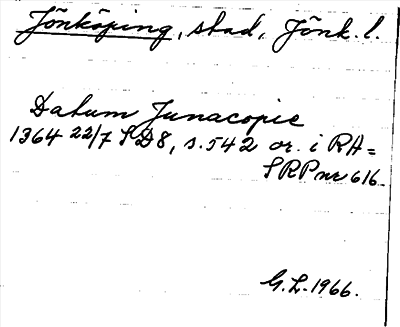 Jönköping, stad, Jönk. l.
Datum Junacopie
1364 22/7 SD8, s. 542 or. i RA =
SRP nr 616.
G. L. 1966.